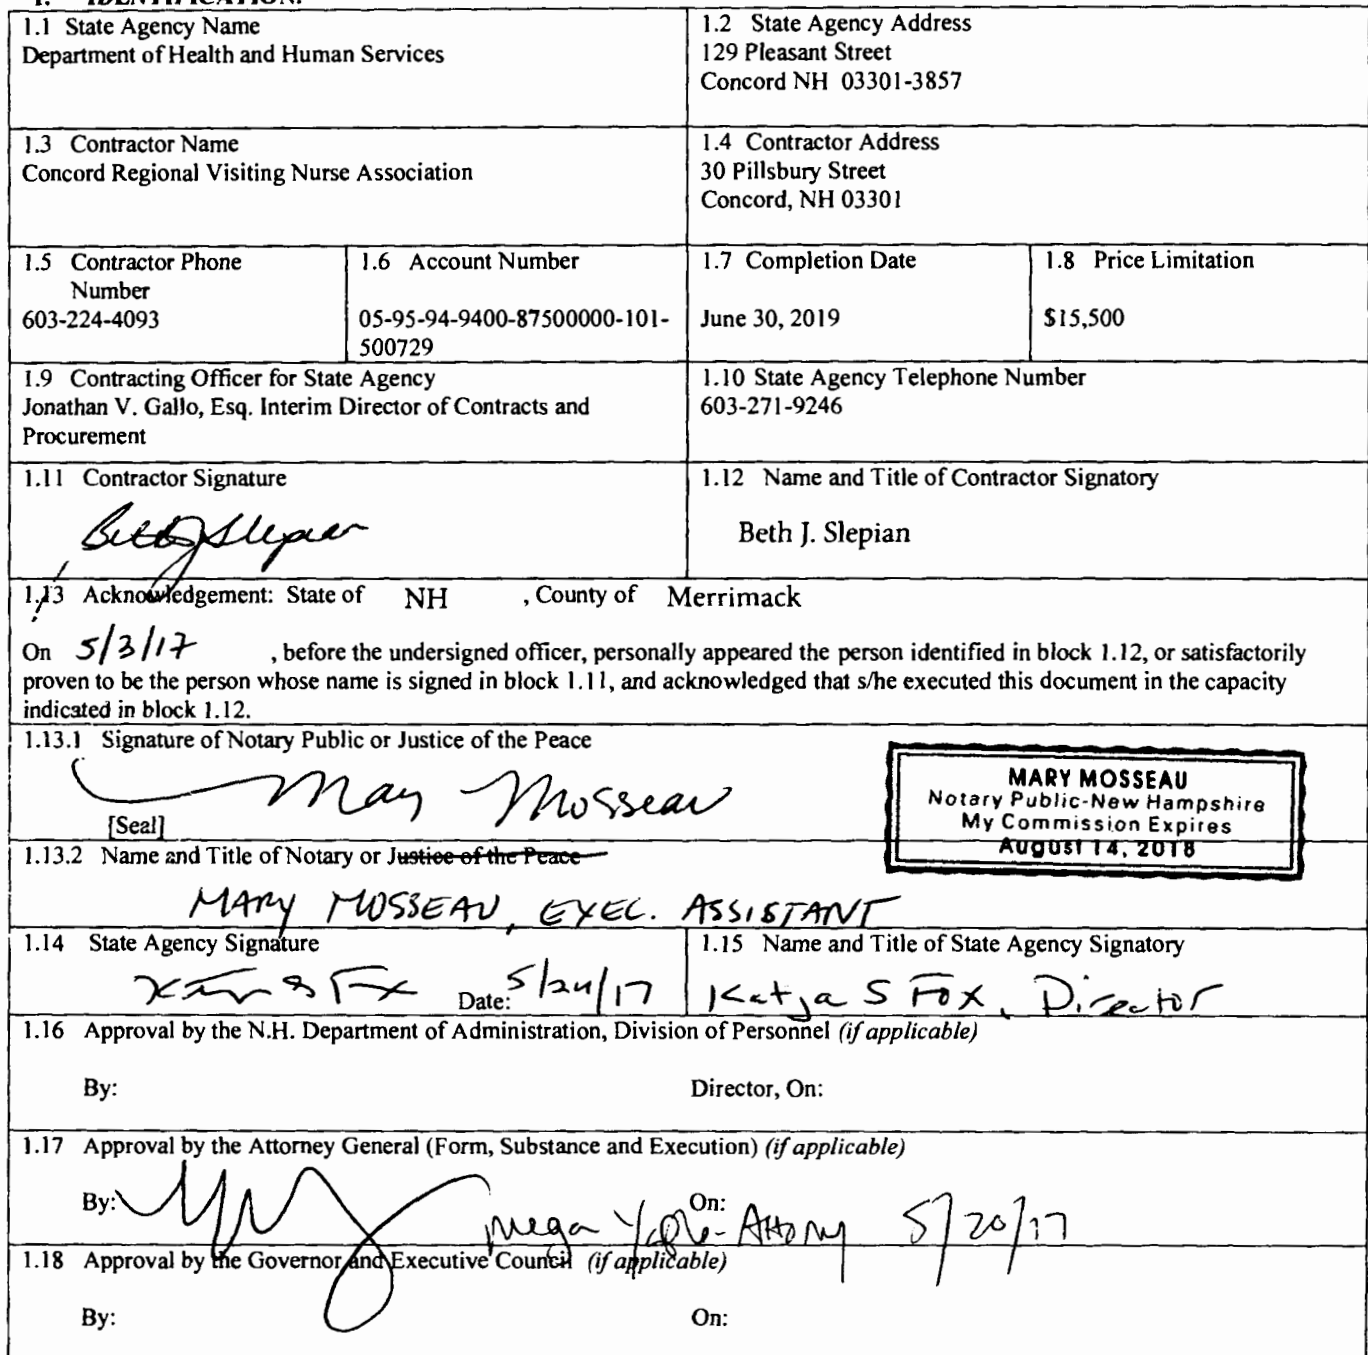 1. IDENTIFICATION.
1.1 State Agency Name
Department of Health and Human Services
1.2 State Agency Address
129 Pleasant Street
Concord NH 03301-3857
1.3 Contractor Name
Concord Regional Visiting Nurse Association
1.4 Contractor Address
30 Pillsbury Street
Concord, NH 03301
1.5 Contractor Phone
Number
603-224-4093
1.6 Account Number
05-95-94-9400-87500000-101-
500729
1.7 Completion Date
June 30, 2019
1.8 Price Limitation
$15,500
1.9 Contracting Officer for State Agency
Jonathan V. Gallo, Esq. Interim Director of Contracts and
Procurement
1.10 State Agency Telephone Number
603-271-9246
1.11 Contractor Signature
Beth J Slepian
1.12 Name and Title of Contractor Signatory
Beth J. Slepian
1.13 Acknowledgement: State of NH , County of Merrimack
On 5/3/17 , before the undersigned officer, personally appeared the person identified in block 1.12, or satisfactorily
proven to be the person whose name is signed in block 1.11, and acknowledged that s/he executed this document in the capacity
indicated in block 1.12.
1.13.1 Signature of Notary Public or Justice of the Peace
Mary Mosseau
[Seal]
MARY MOSSEAU
Notary Public-New Hampshire
My Commission Expires
August 14, 2018
1.13.2 Name and Title of Notary or Justice of the Peace
MARY MOSSEAU, EXEC. ASSISTANT
1.14 State Agency Signature
Date: 5/24/17
1.15 Name and Title of State Agency Signatory
Katja S Fox, Director
1.16 Approval by the N.H. Department of Administration, Division of Personnel (if applicable)
By: Director, On:
1.17 Approval by the Attorney General (Form, Substance and Execution) (if applicable)
By: On:
5/20/17
1.18 Approval by the Governor and Executive Council (if applicable)
By: On: